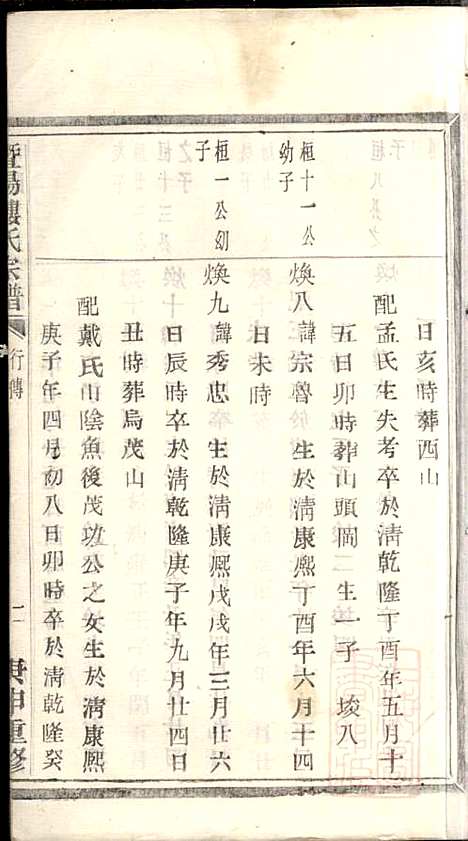 日亥時葬西山
配孟氏生失考卒於清乾隆丁酉年五月十
五日卯時葬山頭岡 生一子 埈八
桓十一公
幼子
煥八諱宗魯 生於清康熙丁酉年六月十四
日未時
桓一公幼
子
煥九諱秀忠 生於清康熙戊戌年三月廿六
日辰時卒於清乾隆庚子年九月廿四日
丑時葬烏茂山
配戴氏山陰魚後茂功公之女生於清康熙
庚子年四月初八日卯時卒於清乾隆癸
暨陽樓氏宗譜
行傳
二
庚申重修